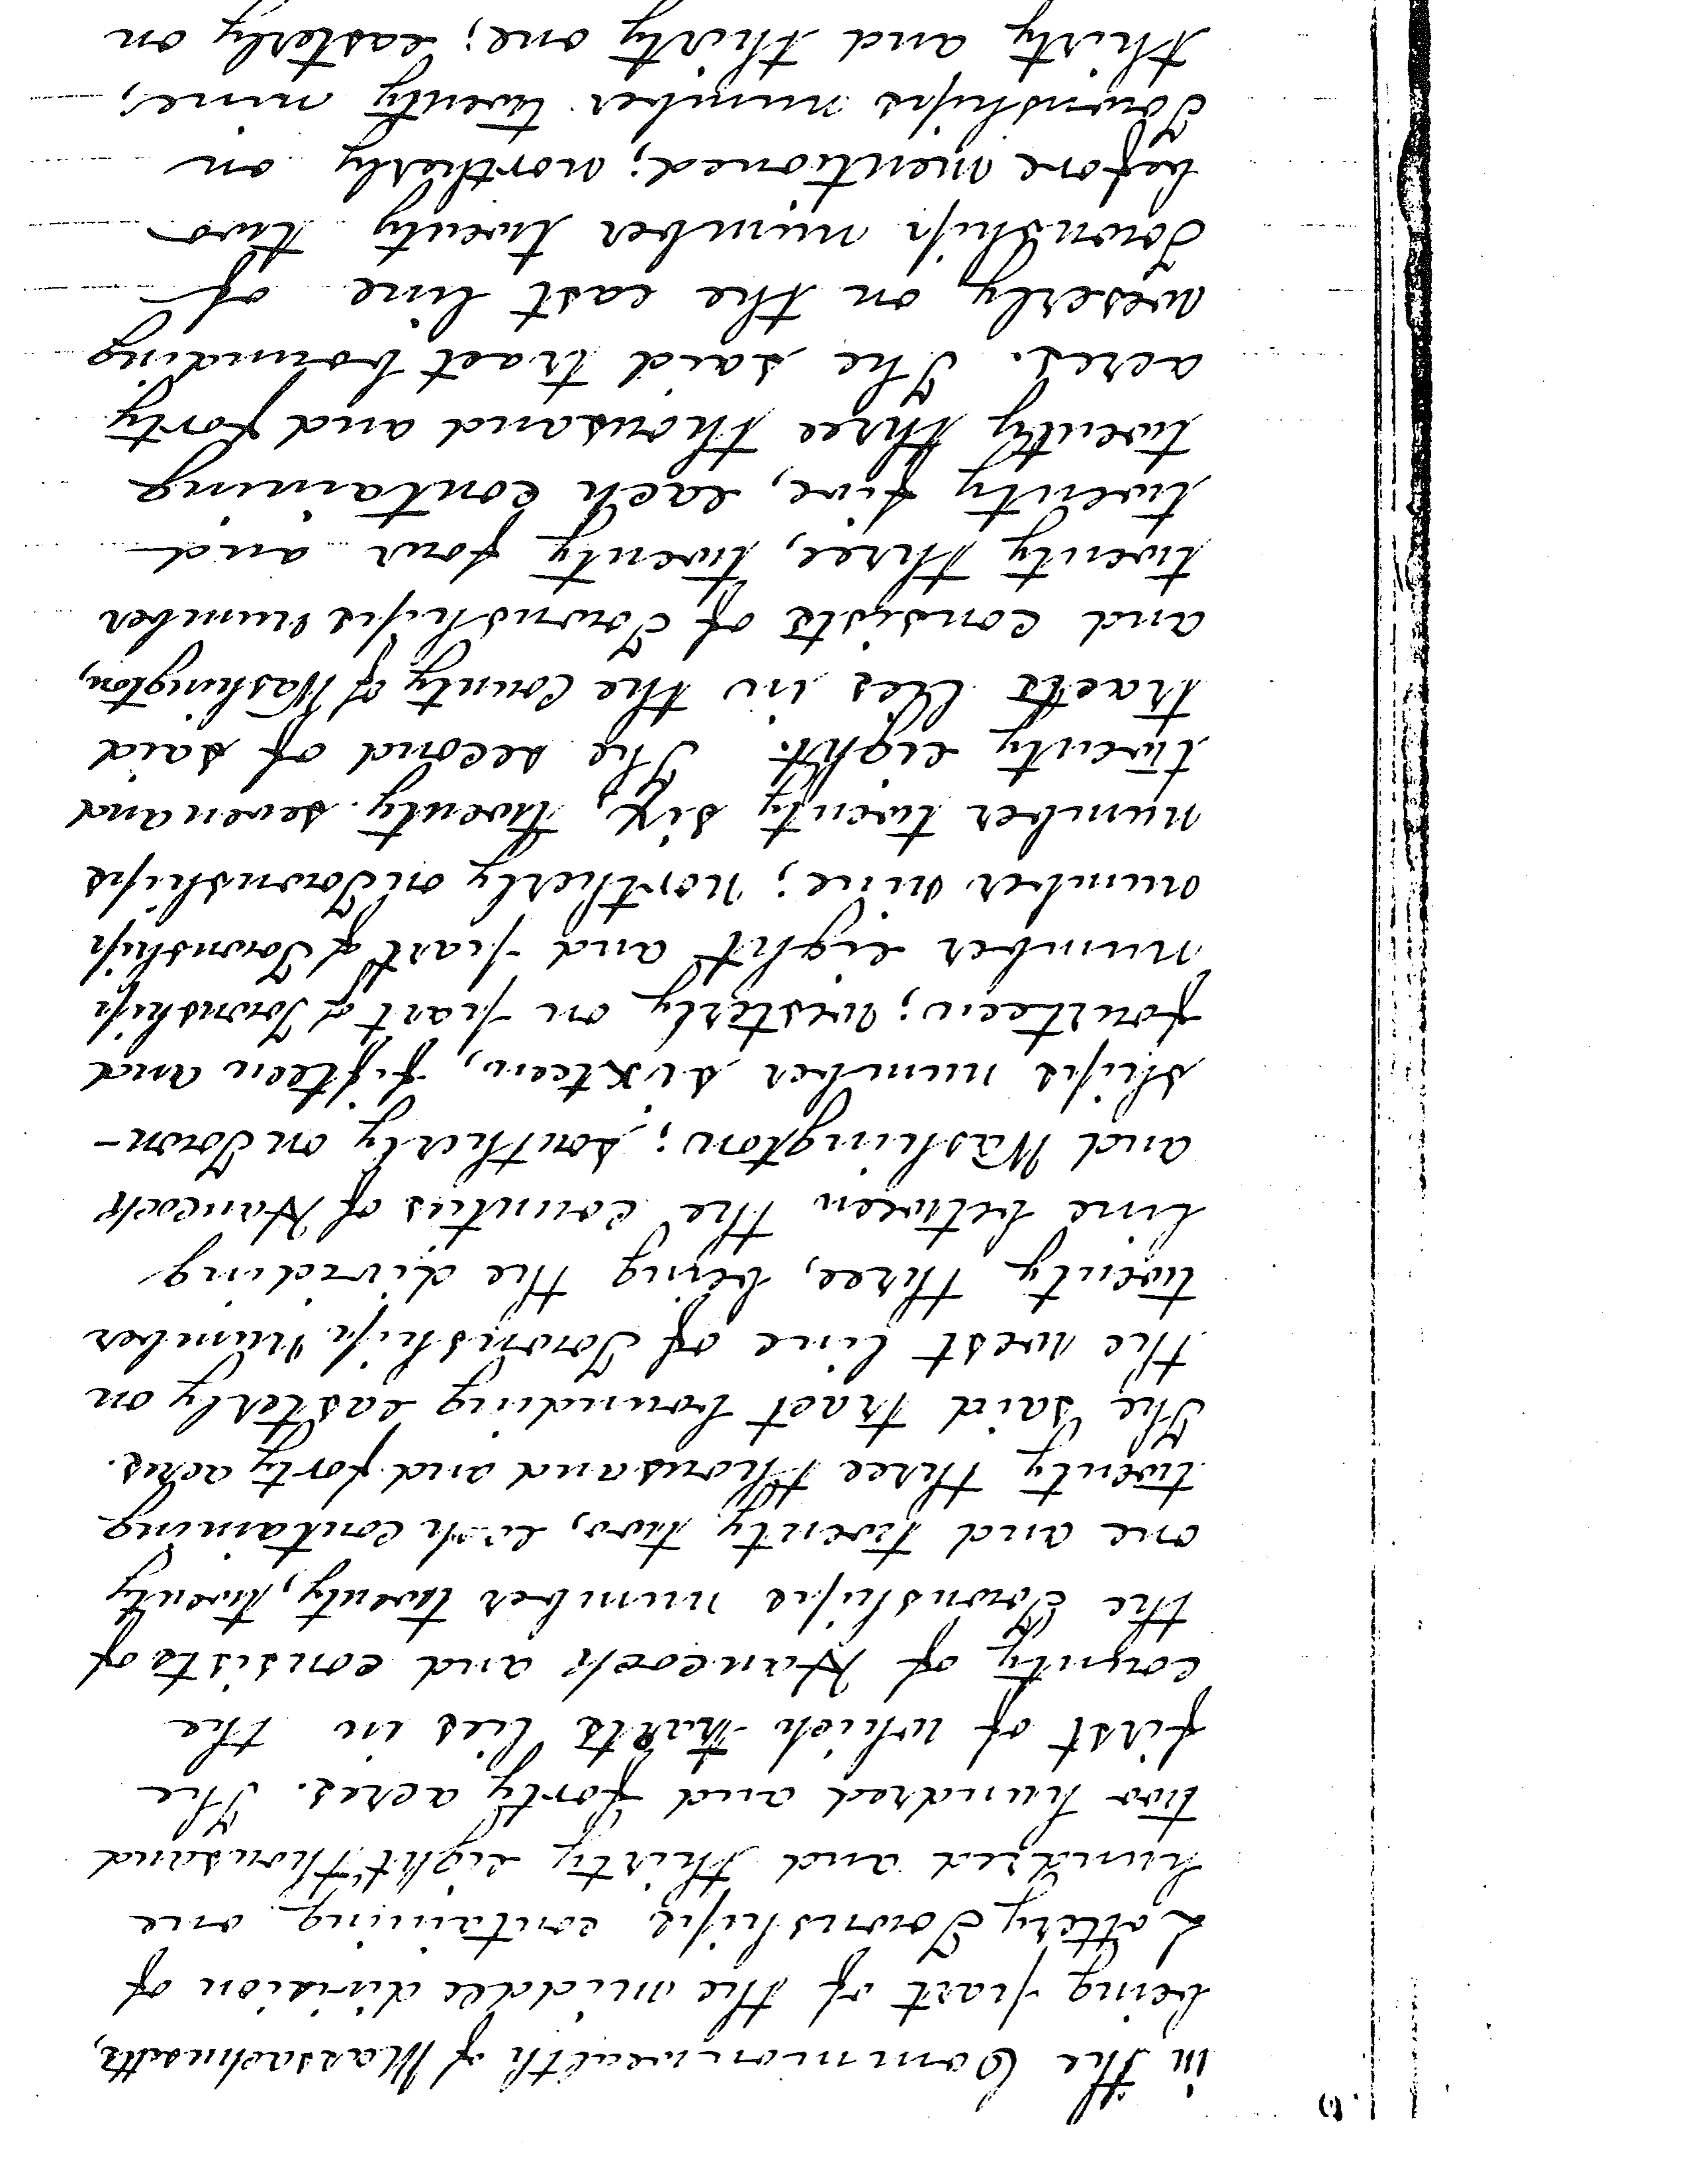 in the Commonwealth of Massachusetts,
being part of the middle division of
Lottery Townships containing one
hundred and thirty eight thousand
two hundred and forty acres. The
first of which tracts lies in the
county of Hancock and consists of
the Townships number twenty, twenty
one and twenty two, each containing
twenty three thousand and forty acres.
The said tract bounding easterly on
the west line of Township number
twenty three, being the dividing
line between the counties of Hancock
and Washington; southerly on Town-
ships number sixteen, fifteen and
fourteen; westerly on part of Township
number eight and part of Township
number nine; northerly on Townships
number twenty six, twenty seven and
twenty eight. The second of said
tracts lies in the County of Washington,
and consists of Townships number
twenty three, twenty four and
twenty five, each containing
twenty three thousand and forty
acres. The said tract bounding
weserly on the east line of
Township number twenty two
before mentioned; northerly on
Townships number twenty nine,
thirty and thirty one; easterly on